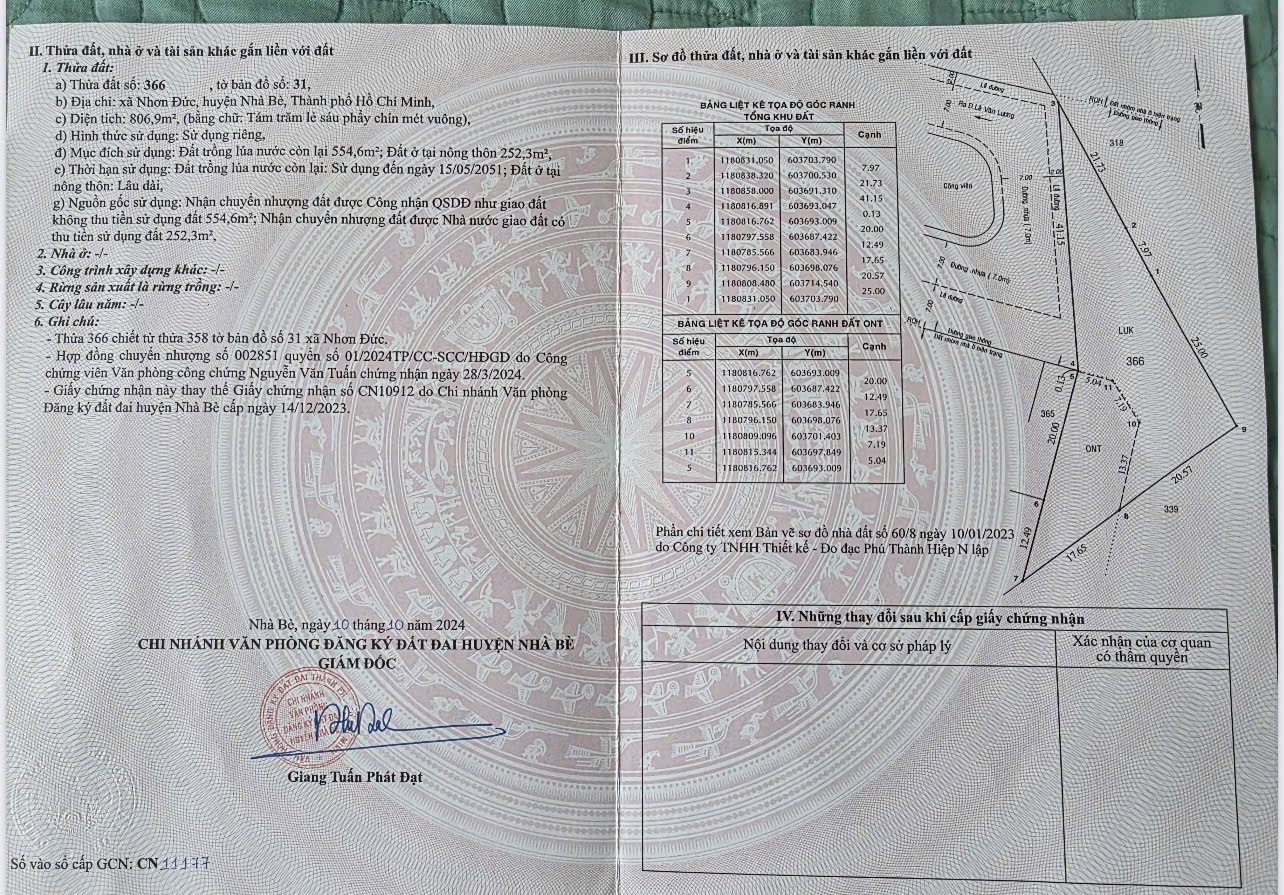 II. Thửa đất, nhà ở và tài sản khác gắn liền với đất
1. Thửa đất:
a) Thửa đất số: 366 , tờ bản đồ số: 31,
b) Địa chỉ: xã Nhơn Đức, huyện Nhà Bè, Thành phố Hồ Chí Minh,
c) Diện tích: 806,9m², (bằng chữ: Tám trăm lẻ sáu phẩy chín mét vuông),
d) Hình thức sử dụng: Sử dụng riêng,
đ) Mục đích sử dụng: Đất trồng lúa nước còn lại 554,6m²; Đất ở tại nông thôn 252,3m²,
e) Thời hạn sử dụng: Đất trồng lúa nước còn lại: Sử dụng đến ngày 15/05/2051; Đất ở tại
nông thôn: Lâu dài,
g) Nguồn gốc sử dụng: Nhận chuyển nhượng đất được Công nhận QSDĐ như giao đất
không thu tiền sử dụng đất 554,6m²; Nhận chuyển nhượng đất được Nhà nước giao đất có
thu tiền sử dụng đất 252,3m²,
2. Nhà ở: -/-
3. Công trình xây dựng khác: -/-
4. Rừng sản xuất là rừng trồng: -/-
5. Cây lâu năm: -/-
6. Ghi chú:
- Thửa 366 chiết từ thửa 358 tờ bản đồ số 31 xã Nhơn Đức.
- Hợp đồng chuyển nhượng số 002851 quyển số 01/2024TP/CC-SCC/HĐGD do Công
chứng viên Văn phòng công chứng Nguyễn Văn Tuấn chứng nhận ngày 28/3/2024.
- Giấy chứng nhận này thay thế Giấy chứng nhận số CN10912 do Chi nhánh Văn phòng
Đăng ký đất đai huyện Nhà Bè cấp ngày 14/12/2023.
Nhà Bè, ngày 10 tháng 10 năm 2024
CHI NHÁNH VĂN PHÒNG ĐĂNG KÝ ĐẤT ĐAI HUYỆN NHÀ BÈ
GIÁM ĐỐC
CHI NHÁNH
VĂN PHÒNG
ĐĂNG KÝ ĐẤT ĐAI
HUYỆN NHÀ BÈ
Giang Tuấn Phát Đạt
Số vào sổ cấp GCN: CN 11177
III. Sơ đồ thửa đất, nhà ở và tài sản khác gắn liền với đất
BẢNG LIỆT KÊ TỌA ĐỘ GÓC RANH
TỔNG KHU ĐẤT
Số hiệu điểm Tọa độ Cạnh
X(m) Y(m)
1 1180831.050 603703.790
7.97
2 1180838.320 603700.530
21.73
3 1180858.000 603691.310
41.15
4 1180816.891 603693.047
0.13
5 1180816.762 603693.009
20.00
6 1180797.558 603687.422
12.49
7 1180785.566 603683.946
17.65
8 1180796.150 603698.076
20.57
9 1180808.480 603714.540
25.00
1 1180831.050 603703.790
BẢNG LIỆT KÊ TỌA ĐỘ GÓC RANH ĐẤT ONT
Số hiệu điểm Tọa độ Cạnh
X(m) Y(m)
5 1180816.762 603693.009
20.00
6 1180797.558 603687.422
12.49
7 1180785.566 603683.946
17.65
8 1180796.150 603698.076
13.37
10 1180809.096 603701.403
7.19
11 1180815.344 603697.849
5.04
5 1180816.762 603693.009
Lề đường
Ra Đ.Lê Văn Lương
7.00
RQH
Đất nhóm nhà ở hiện trạng
Đường giao thông
318
3
21.73
2.00
7.00
Lề đường
Đường nhựa (7.0m)
Công viên
41.15
2
7.97
1
7.00
Đường nhựa (7.0m)
Lề đường
7.00
RQH
Đường giao thông
Đất nhóm nhà ở hiện trạng
LUK
366
25.00
4
5
5.04
11
0.13
7.19
10
9
365
20.00
ONT
13.37
20.57
6
8
339
12.49
17.65
7
Phần chi tiết xem Bản vẽ sơ đồ nhà đất số 60/8 ngày 10/01/2023
do Công ty TNHH Thiết kế - Đo đạc Phú Thành Hiệp N lập
IV. Những thay đổi sau khi cấp giấy chứng nhận
Nội dung thay đổi và cơ sở pháp lý
Xác nhận của cơ quan
có thẩm quyền